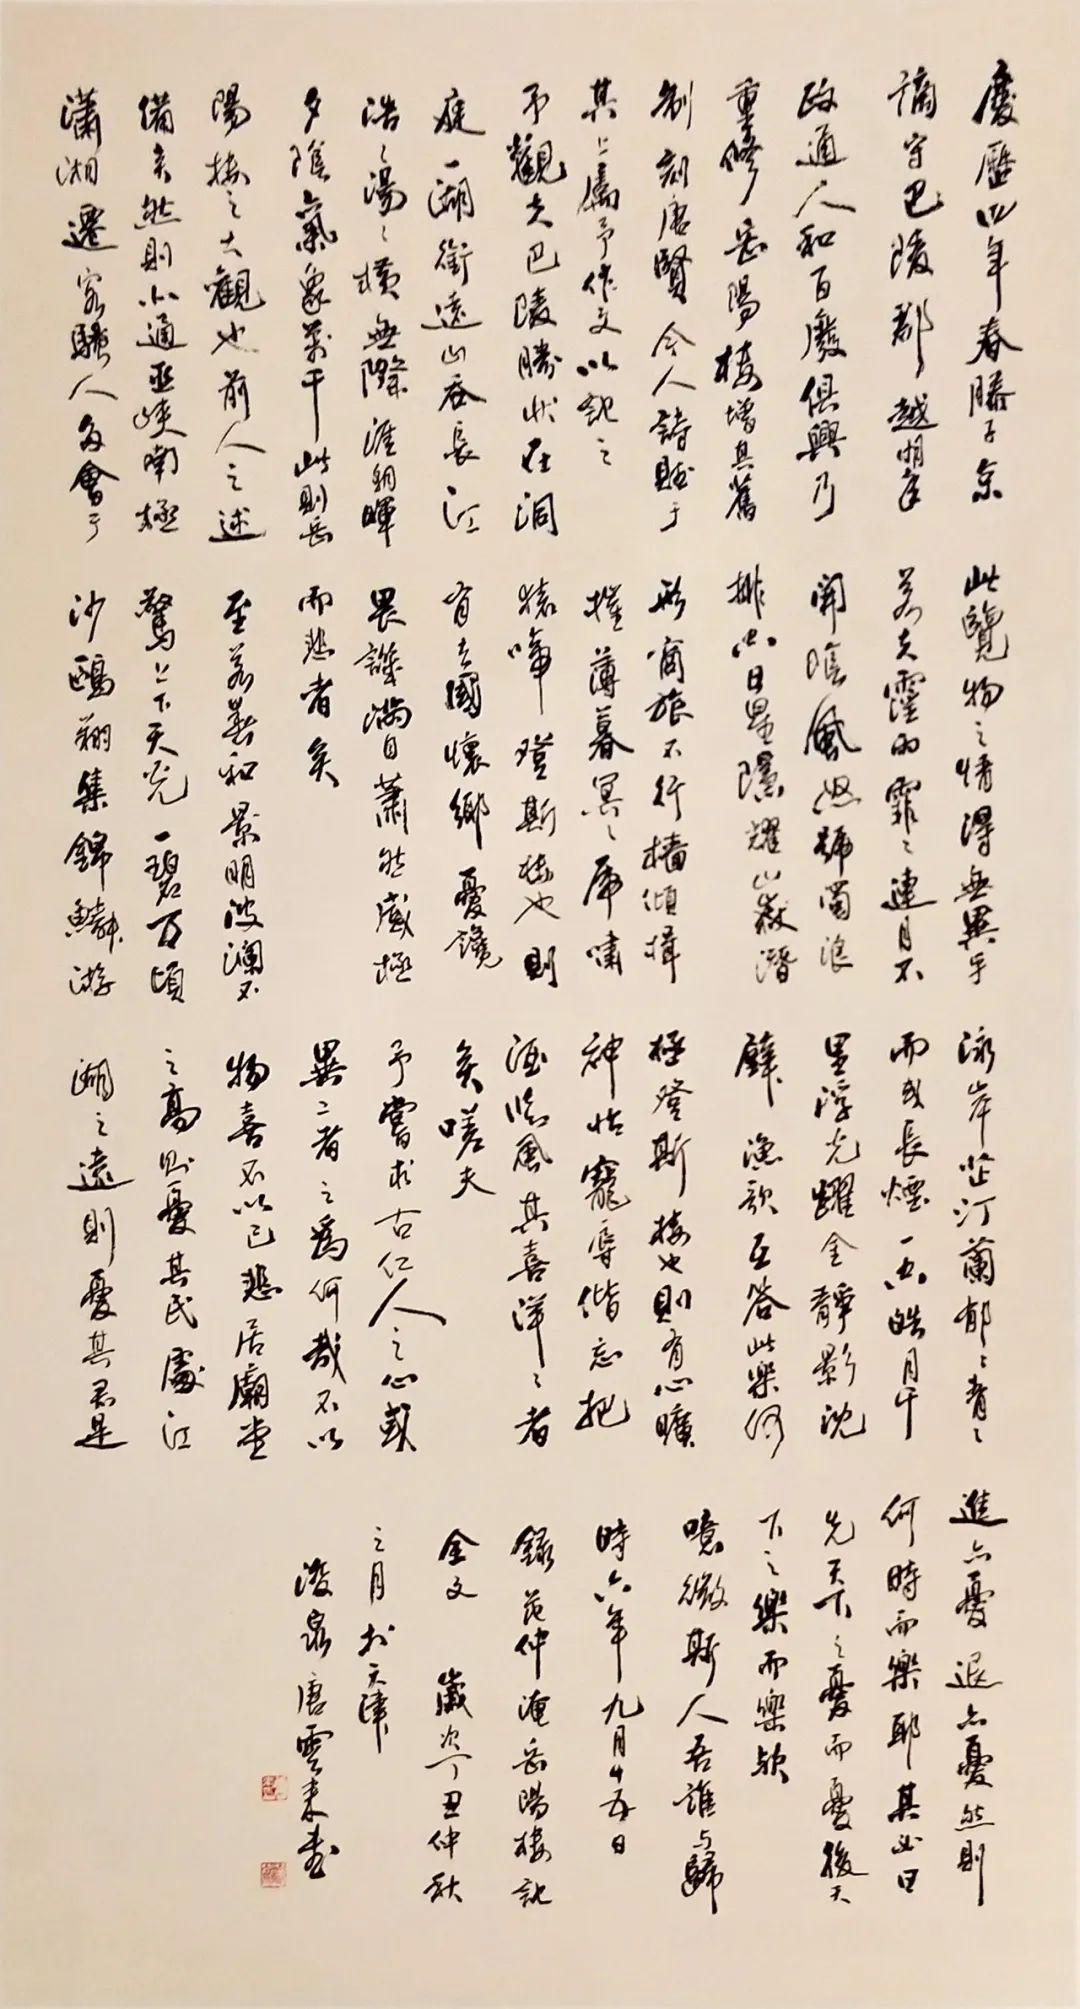 慶曆四年春滕子京
謫守巴陵郡越明年
政通人和百廢俱興乃
重修岳陽樓增其舊
制刻唐賢今人詩賦于
其上屬予作文以記之
予觀夫巴陵勝狀在洞
庭一湖銜遠山吞長江
浩々湯々橫無際涯朝暉
夕陰氣象萬千此則岳
陽樓之大觀也前人之述
備矣然則北通巫峽南極
瀟湘遷客騷人多會于
此覽物之情得無異乎
若夫霪雨霏々連月不
開陰風怒號濁浪
排空日星隱耀山嶽潛
形商旅不行檣傾楫
摧薄暮冥々虎嘯
猿啼登斯樓也則
有去國懷鄉憂讒
畏譏滿目蕭然感極
而悲者矣
至若春和景明波瀾不
驚上下天光一碧萬頃
沙鷗翔集錦鱗游
泳岸芷汀蘭郁々青々
而或長煙一空皓月千
里浮光耀金靜影沈
璧漁歌互答此樂何
極登斯樓也則有心曠
神怡寵辱偕忘把
酒臨風其喜洋々者
矣嗟夫
予嘗求古仁人之心或
異二者之為何哉不以
物喜不以己悲居廟堂
之高則憂其民處江
湖之遠則憂其君是
進亦憂退亦憂然則
何時而樂耶其必曰
先天下之憂而憂後天
下之樂而樂歟
噫微斯人吾誰與歸
時六年九月十五日
錄范仲淹岳陽樓記
全文 歲次丁丑仲秋
之月於天津
滌泉唐雲來書